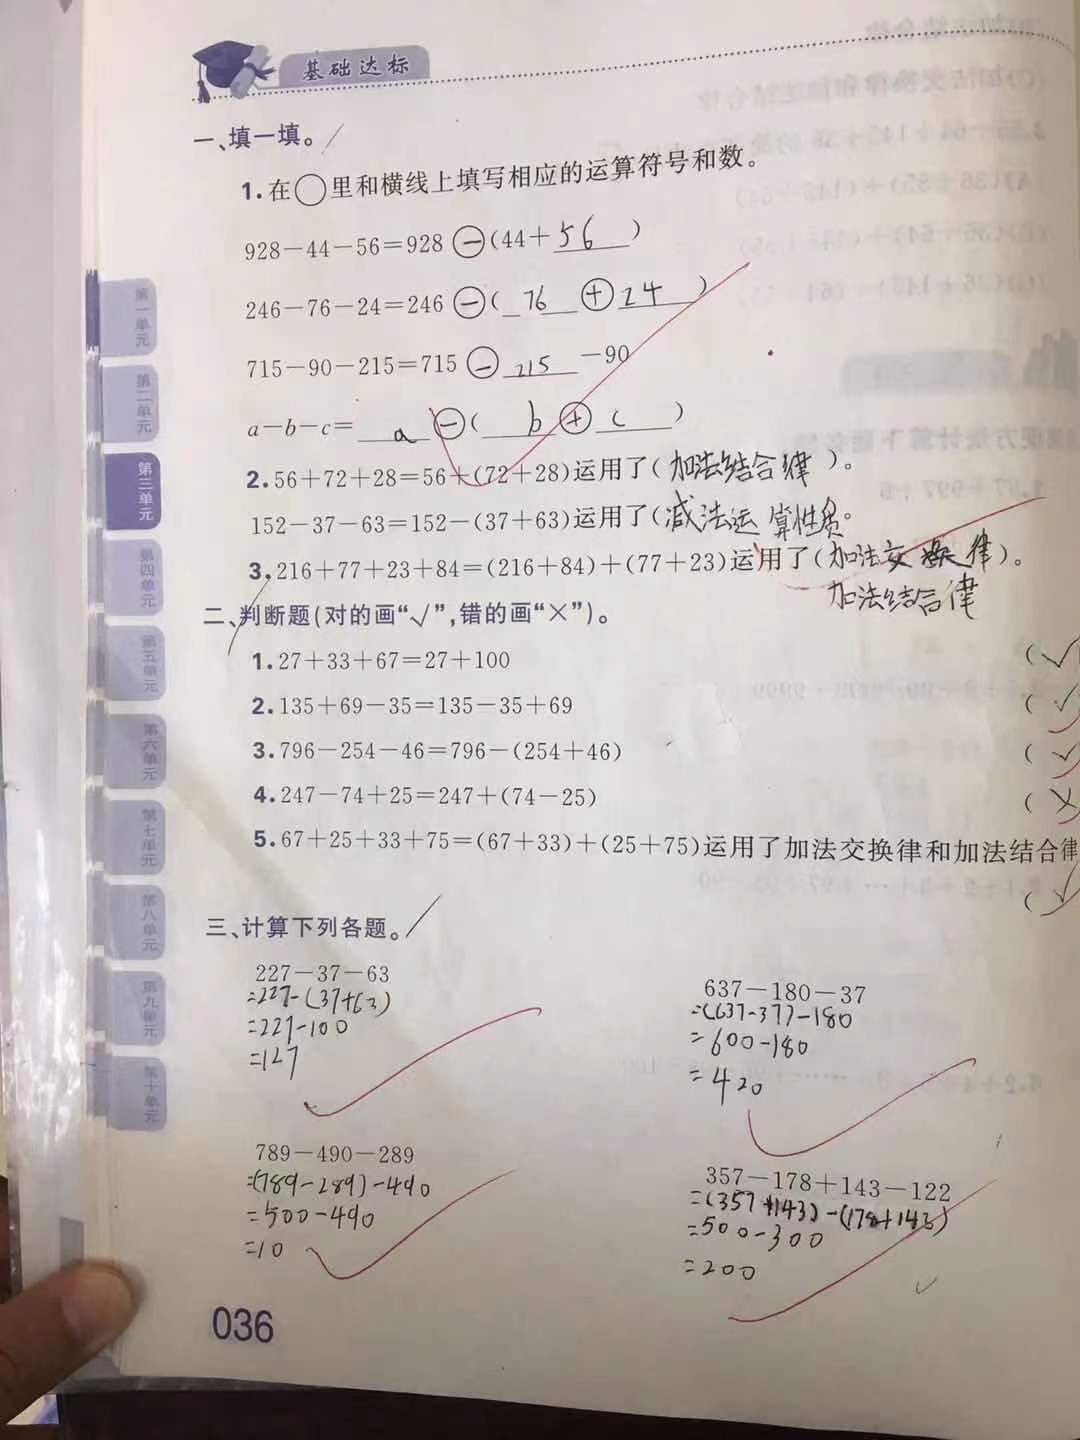 基础达标
一、填一填。
1.在○里和横线上填写相应的运算符号和数。
928-44-56=928⊖(44+56)
246-76-24=246⊖(76⊕24)
715-90-215=715⊖215-90
a-b-c=a⊖(b⊕c)
2.56+72+28=56+(72+28)运用了(加法结合律)。
152-37-63=152-(37+63)运用了(减法运算性质。
3.216+77+23+84=(216+84)+(77+23)运用了(加法交换律)。
加法结合律
二、判断题(对的画“√”,错的画“×”)。
1.27+33+67=27+100 (√
2.135+69-35=135-35+69 (√
3.796-254-46=796-(254+46) (√
4.247-74+25=247+(74-25) (×
5.67+25+33+75=(67+33)+(25+75)运用了加法交换律和加法结合律
(√
三、计算下列各题。
227-37-63
=227-(37+63)
=227-100
=127
637-180-37
=(637-37)-180
=600-180
=420
789-490-289
=(789-289)-490
=500-490
=10
357-178+143-122
=(357+143)-(178+143)
=500-300
=200
036
第一单元
第二单元
第三单元
第四单元
第五单元
第六单元
第七单元
第八单元
第九单元
第十单元